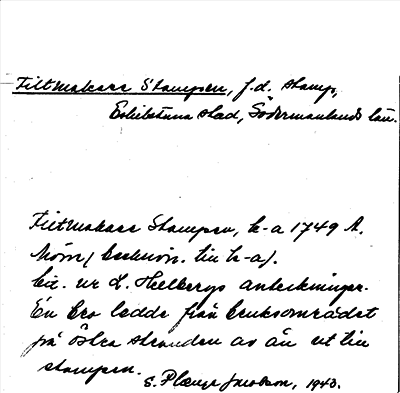 Filtmakare Stampen, f.d. stamp,
Eskilstuna stad, Södermanlands län.
Filtmakare Stampen, k-a 1749 A.
Mörn / beskrivn. till k-a /.
Cit. ur L. Hellbergs anteckningar.
En bro ledde från bruksområdet
på östra stranden av ån ut till
stampen.
S. Plænge Jacobson, 1943.